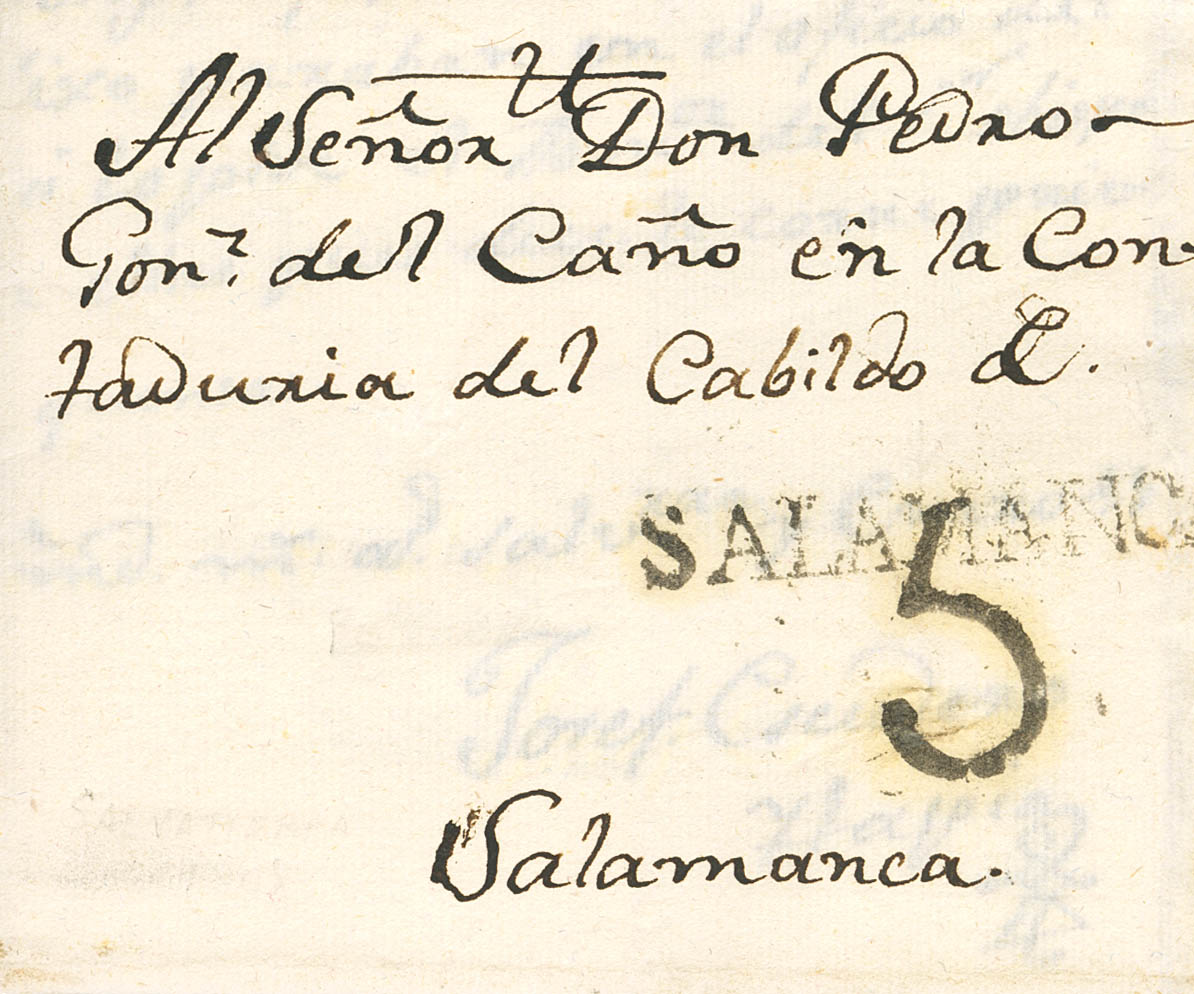 Al Señor Don Pedro
Gonz. del Caño en la Con-
taduria del Cabildo de.
SALAMANCA
5
Salamanca.